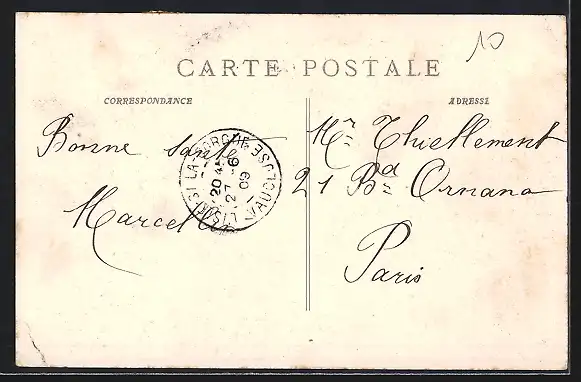 10
CARTE POSTALE
CORRESPONDANCE
ADRESSE
Bonne santé
Marcel
L'ISLE-S-LA-SORGUE VAUCLUSE
20 45
27 -6
09
Mr Thiellement
21 Bd Ornano
Paris